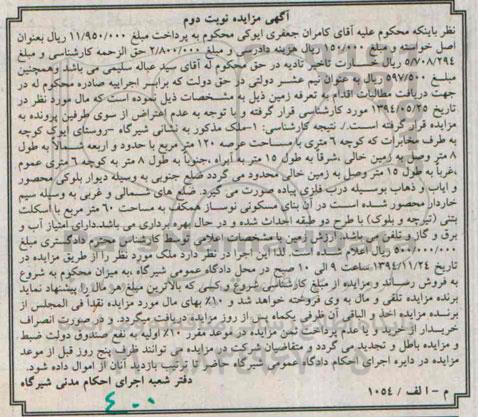 آگهی مزایده نوبت دوم
نظر باینکه محکوم علیه آقای کامران جعفری ایوکی محکوم به پرداخت مبلغ ۱۱/۹۵۰/۰۰۰ ریال بعنوان
اصل خواسته و مبلغ ۱۵۰/۰۰۰ ریال هزینه دادرسی و مبلغ ۲/۸۰۰/۰۰۰ حق الزحمه کارشناسی و مبلغ
۵/۷۰۸/۲۹۴ ریال خسارت تاخیر تادیه در حق محکوم له آقای سید عباله سلیمی می باشد وهمچنین
مبلغ ۵۹۷/۵۰۰ ریال به عنوان نیم عشر دولتی در حق دولت که برابر اجراییه صادره محکوم له در
جهت دریافت مطالبات اقدام به تعرفه زمین ذیل به مشخصات ذیل نموده است که مال مورد نظر در
تاریخ ۱۳۹۴/۰۵/۲۵ مورد کارشناسی قرار گرفته و با توجه به عدم اعتراض از سوی طرفین پرونده به
مزایده قرار گرفته است./. نتیجه کارشناسی: ۱-ملک مذکور به نشانی شیرگاه -روستای ایوک کوچه
به طرف مخابرات که کوچه ۶ متری با مساحت عرصه ۱۲۰ متر مربع با حدود و اربعه شمالاً به طول
۸ متر وصل به زمین خالی ،شرقاً به طول ۱۵ متر به آبراه ،جنوباً به طول ۸ متر به کوچه ۶ متری عموم
،غرباً به طول ۱۵ متر وصل به زمین خالی محدود می گردد ضلع جنوبی به وسیله دیوار بلوکی محصور
و ایاب و ذهاب بوسیله درب فلزی پیاده صورت می گیرد. ضلع های شمالی و غربی به وسیله سیم
خاردار محصور شده است در آن بنای مسکونی نوساز همکف به مساحت ۶۰ متر مربع با اسکلت
بتنی (تیرچه و بلوک) با طرح دو طبقه احداث شده و در حال بهره برداری می باشد.دارای امتیاز آب و
برق و گاز و تلفن می باشد. ارزش زمین با مشخصات اعلامی توسط کارشناس محترم دادگستری مبلغ
۵۰۰/۰۰۰/۰۰۰ ریال اعلام شده است. لذا این اجرا در نظر دارد ملک مورد نظر را از طریق مزایده در
تاریخ ۱۳۹۴/۱۱/۲۴ ساعت ۹ الی ۱۰ صبح در محل دادگاه عمومی شیرگاه ،به میزان محکوم به شروع
به فروش رساند و مزایده از مبلغ کارشناسی شروع و کسی که بالاترین مبلغ را پیشنهاد نماید
برنده مزایده تلقی و مال به وی فروخته خواهد شد و ۱۰٪ بهای مال مورد مزایده نقداً فی المجلس از
برنده مزایده اخذ و الباقی آن ظرفی یکماه پس از روز مزایده دریافت میگردد. و در صورت انصراف
خریدار از خرید و یا عدم پرداخت ثمن مزایده در موعد مقرر ۱۰٪ اولیه به نفع صندوق دولت ضبط
و مزایده باطل و تجدید می گردد و متقاضیان شرکت در مزایده می توانند ظرف پنج روز قبل از موعد
مزایده در دایره اجرای احکام دادگاه عمومی شیرگاه حاضر تا ترتیب بازدید آنان از اموال داده شود.
دفتر شعبه اجرای احکام مدنی شیرگاه
م - الف / ۱۰۵۴
۴۰۰